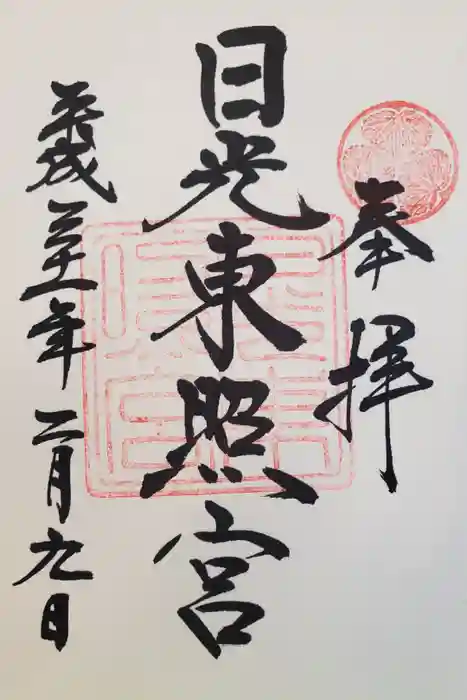 奉拝
日光東照宮
平成三十一年二月九日